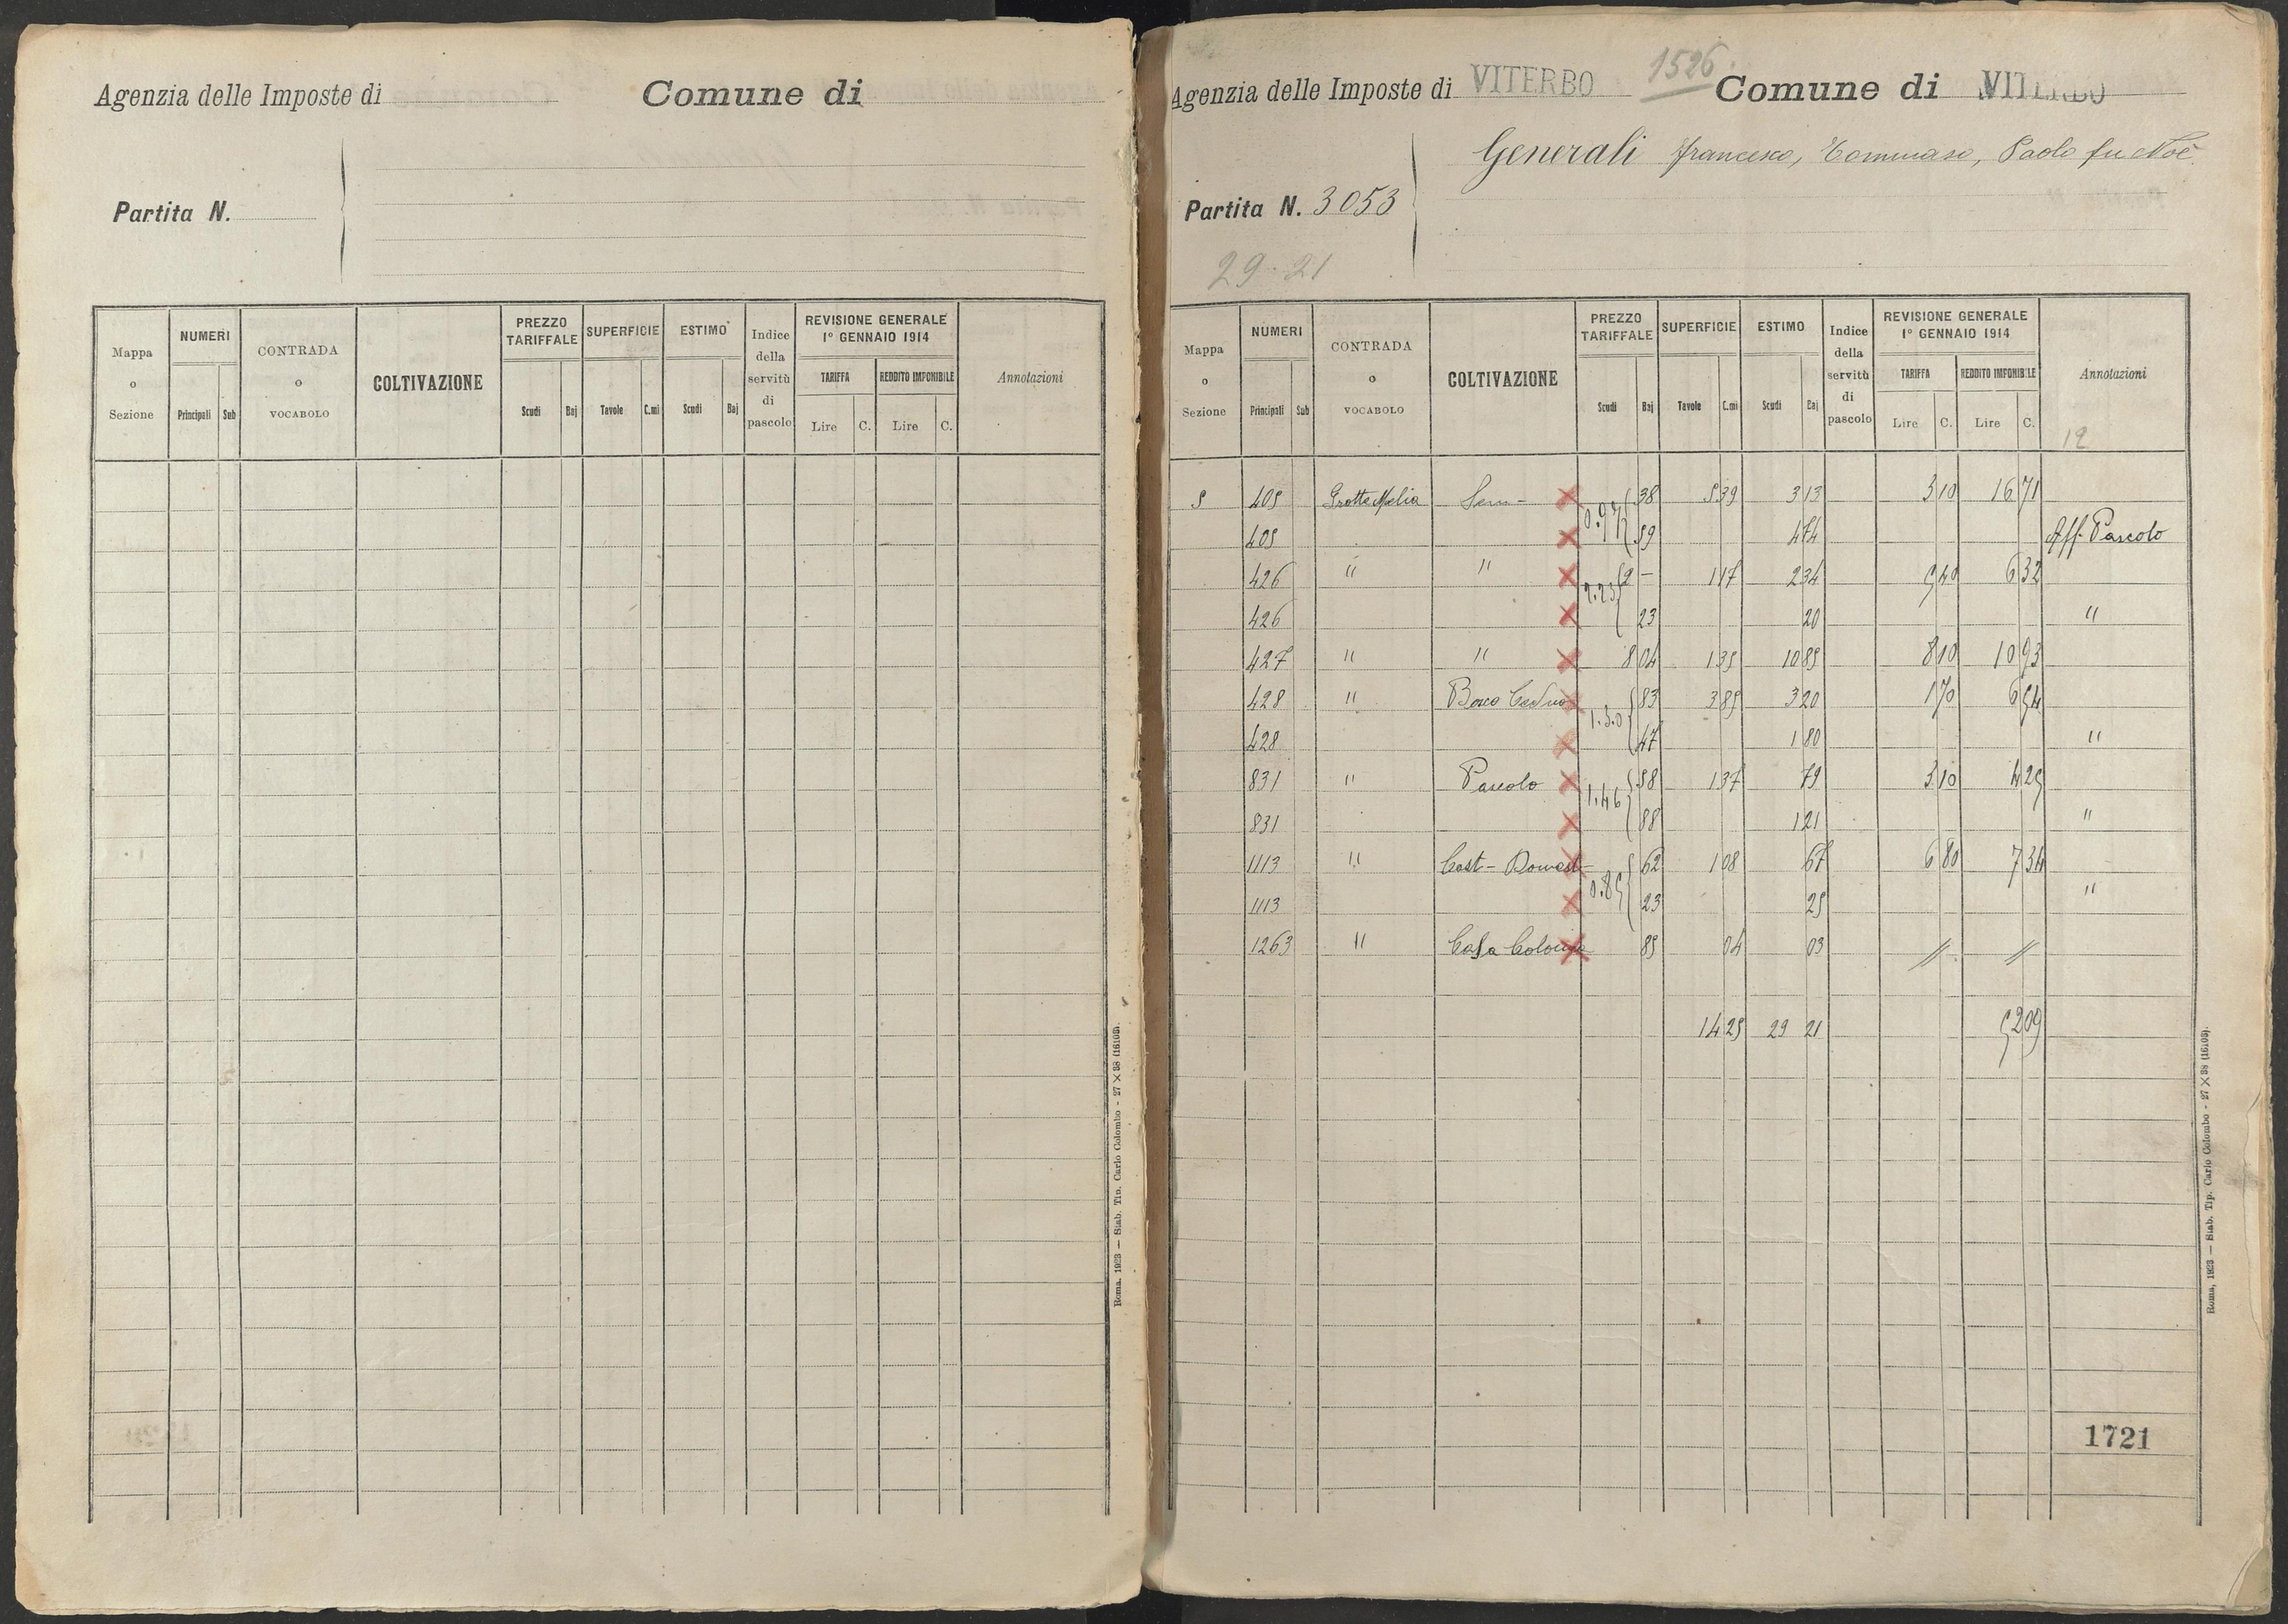 Agenzia delle Imposte di Comune di
Partita N.
Mappa o Sezione NUMERI Principali Sub CONTRADA o VOCABOLO COLTIVAZIONE PREZZO TARIFFALE Scudi Baj SUPERFICIE Tavole C.mi ESTIMO Scudi Baj Indice della servitù di pascolo REVISIONE GENERALE 1° GENNAIO 1914 TARIFFA Lire C. REDDITO IMPONIBILE Lire C. Annotazioni
Roma, 1923 — Stab. Tip. Carlo Colombo - 27 × 38 (16103).
Agenzia delle Imposte di VITERBO 1526 Comune di VITERBO
Generali Francesco, Tommaso, Paolo fu Noè
Partita N. 3053
29.21
Mappa o Sezione NUMERI Principali Sub CONTRADA o VOCABOLO COLTIVAZIONE PREZZO TARIFFALE Scudi Baj SUPERFICIE Tavole C.mi ESTIMO Scudi Baj Indice della servitù di pascolo REVISIONE GENERALE 1° GENNAIO 1914 TARIFFA Lire C. REDDITO IMPONIBILE Lire C. Annotazioni
12
5 405 Grotte Melia Sem- × 0.97 38 5 39 3 13 3 10 16 71
405 × 59 4 74 Aff. Pascolo
426 " " × 2.23 2 - 1 17 2 34 5 40 6 32
426 × 23 20 "
427 " " × 8 04 1 35 10 85 8 10 10 93
428 " Bosco Ceduo × 1.30 83 3 85 3 20 1 70 6 54
428 × 47 1 80 "
831 " Pascolo × 1.46 58 1 37 79 3 10 4 25
831 × 88 1 21 "
1113 " Cast- Domest- × 0.85 62 1 08 67 6 80 7 34
1113 × 23 25 "
1263 " Casa Colonica × 85 04 03 // //
14 25 29 21 52 09
1721
Roma, 1923 — Stab. Tip. Carlo Colombo - 27 × 38 (16103).